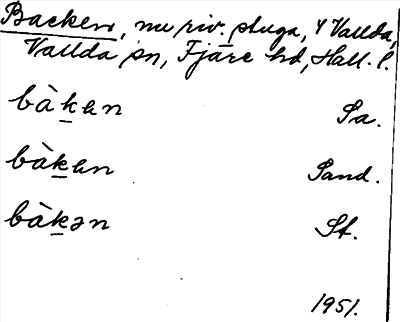 Backen, nu riv. stuga, 4 Vallda,
Vallda sn, Fjäre hd, Hall. l.
bàken Sa.
bàken Sand.
bàkən St.
1951.